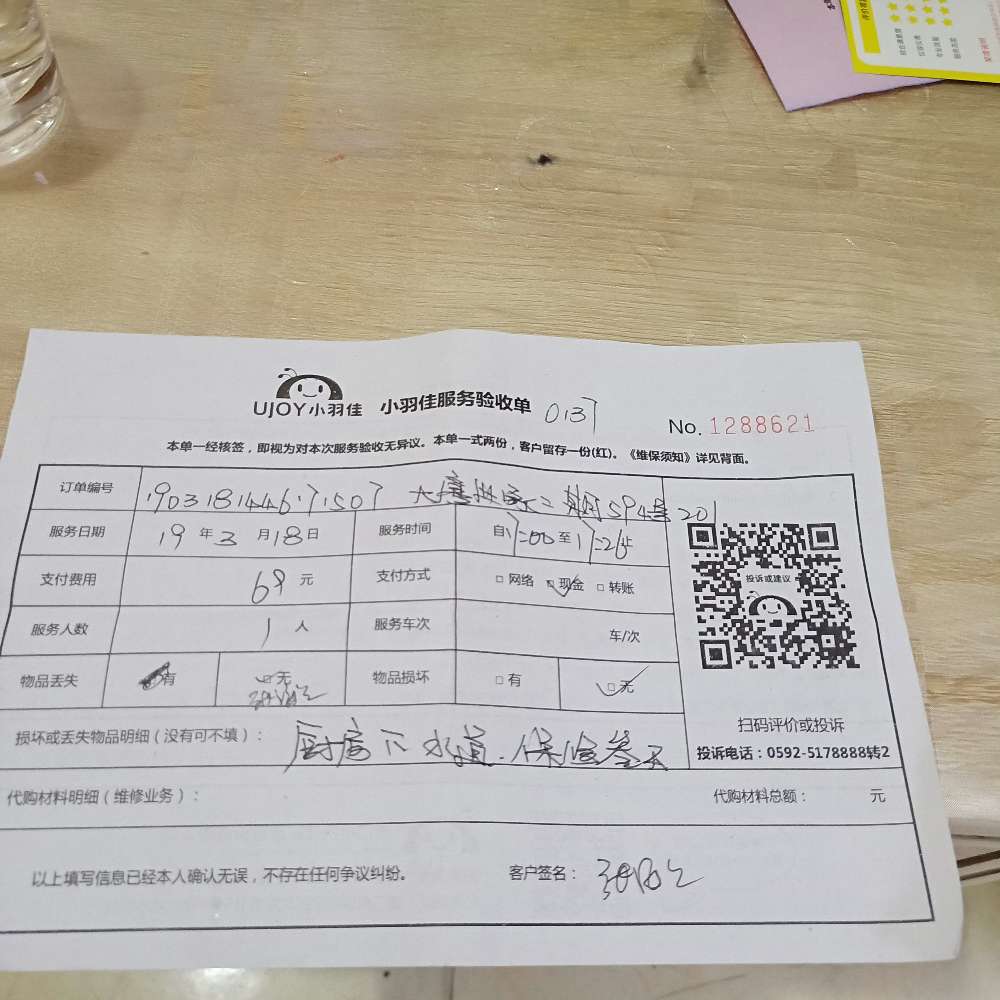 UJOY小羽佳 小羽佳服务验收单 0137
No. 1288621
本单一经核签，即视为对本次服务验收无异议。本单一式两份，客户留存一份(红)。《维保须知》详见背面。
订单编号 1903181446171507 大唐 二期 594 201
服务日期 19 年 3 月 18 日 服务时间 自 17:00 至 17:26
支付费用 69 元 支付方式 □ 网络 □ 现金 □ 转账
服务人数 1 人 服务车次 车/次
物品丢失 有 □ 无 物品损坏 □ 有 □ 无
投诉或建议
扫码评价或投诉
投诉电话：0592-5178888转2
损坏或丢失物品明细（没有可不填）： 厨房下水道.保修叁天
代购材料明细（维修业务）： 代购材料总额： 元
以上填写信息已经本人确认无误，不存在任何争议纠纷。 客户签名：